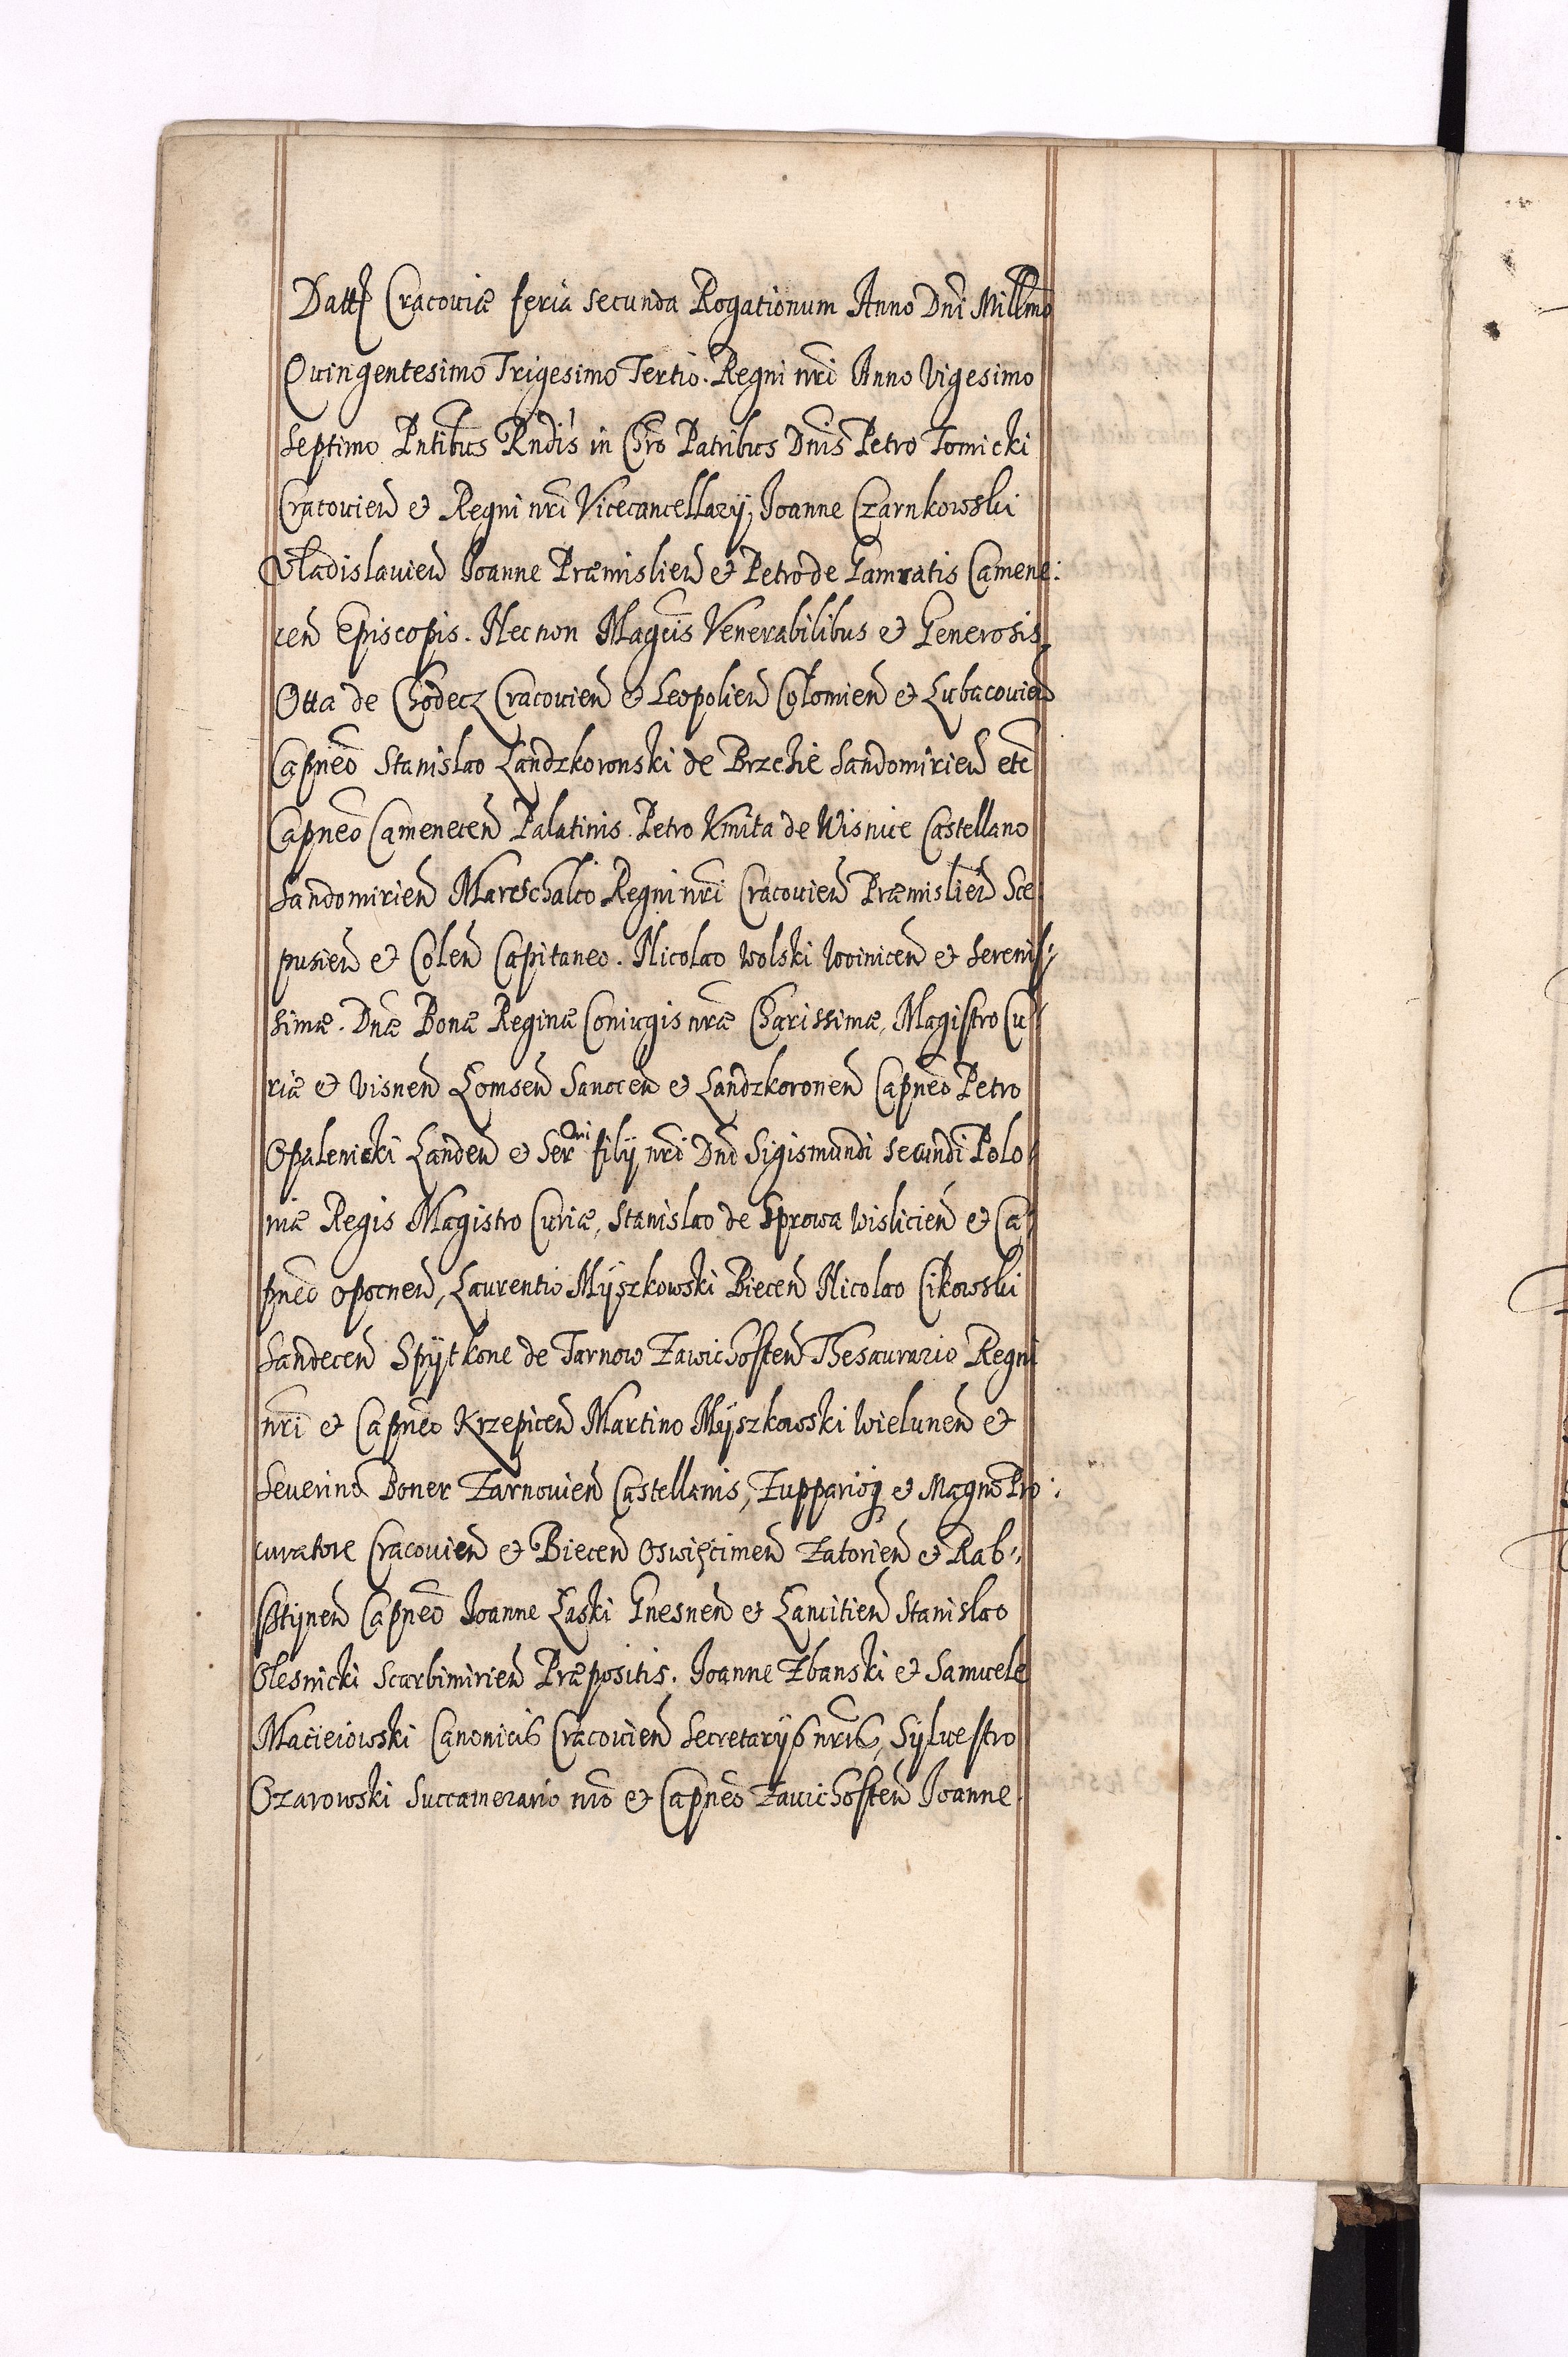 Datt Cracoviæ feria secunda Rogationum Anno Dni Millmo
Quingentesimo Trigesimo Tertio. Regni nri Anno Vigesimo
Septimo Pntibus Rndis in Chro Patribus Dnis Petro Tomicki
Cracovien et Regni nri Vicecancellarÿ, Joanne Czarnkowski
Vladislavien Joanne Præmislien et Petro de Gamratis Camene:
cen Episcopis. Nec non Magcis Venerabilibus et Generosis,
Otta de Chodecz Cracovien et Leopolien Colomien et Lubacovien
Capneo Stanislao Landzkoronski de Brzezie Sandomirien etc
Capneo Camenecen Palatinis. Petro Kmita de Wisnice Castellano
Sandomirien Mareschalco Regni nri Cracovien Præmislien Sce
pusien et Colen Capitaneo. Nicolao Wolski Woinicen et Serenis,,
simæ. Dnæ Bonæ Reginæ Coniugis nræ Charissimæ, Magistro Cu,,
riæ et Visnen Lomsen Sanocen et Landzkoronen Capneo Petro
Opalenicki Landen et Ser filÿ nri Dni Sigismundi secundi Polo,
niæ Regis Magistro Curiæ, Stanislao de Sprowa Wislicien et Ca,
pneo Opocnen, Laurentio Mÿszkowski Biecen Nicolao Cikowski
Sandecen Spÿtkone de Tarnow Zawichosten Thesaurario Regni
nri et Capneo Krzepicen Martino Mÿszkowski Wielunen et
Severino Boner Zarnovien Castellanis, Zuppario et Magno Pro:
curatore Cracovien et Biecen Oswięcimen Zatorien et Rab,,
sztÿnen Capneo Joanne Laski Gnesnen et Lancitien Stanislao
Olesnicki Scarbimirien Præpositis. Joanne Zbanski et Samuele
Macieiowski Canonicis Cracovien Secretarÿs nris, Sÿlvestro
Ozarowski Succamerario nro et Capneo Zavichosten Joanne